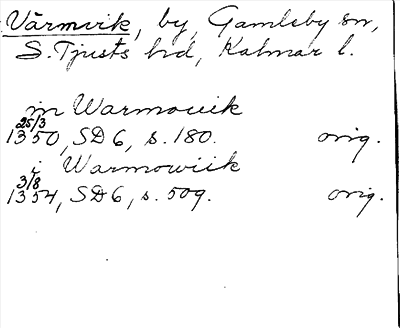 Värmvik, by, Gamleby sn,
S. Tjusts hd, Kalmar l.
in Warmowik
25/3
1350, SD 6, s. 180. orig.
i Warmowiik
3/8
1354, SD 6, s. 509. orig.